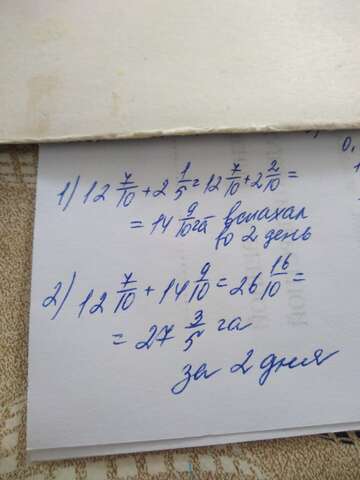 1) 12 7/10 + 2 1/5 = 12 7/10 + 2 2/10 =
= 14 9/10 га вспахал
во 2 день
2) 12 7/10 + 14 9/10 = 26 16/10 =
= 27 3/5 га
за 2 дня
0,